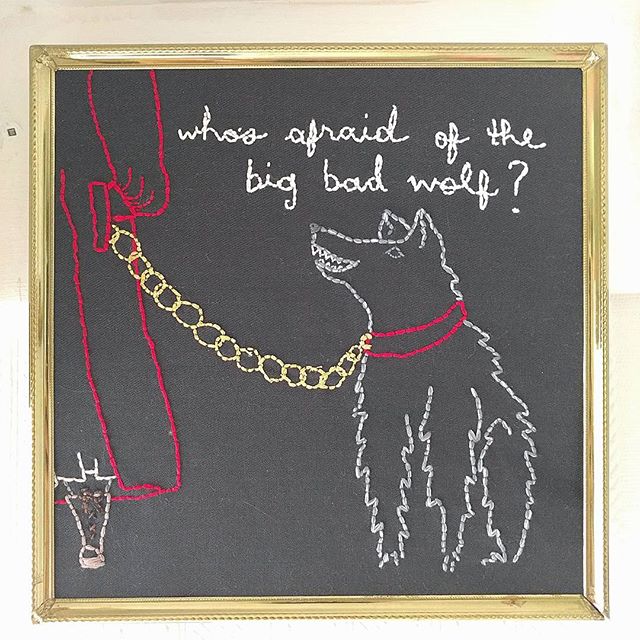 who's afraid of the
big bad wolf?